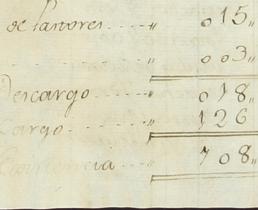 de Pastores . . . . " 015"
. . . . . . . " 003"
Descargo . . . . " 018"
Cargo . . . . . " 126
" 108"